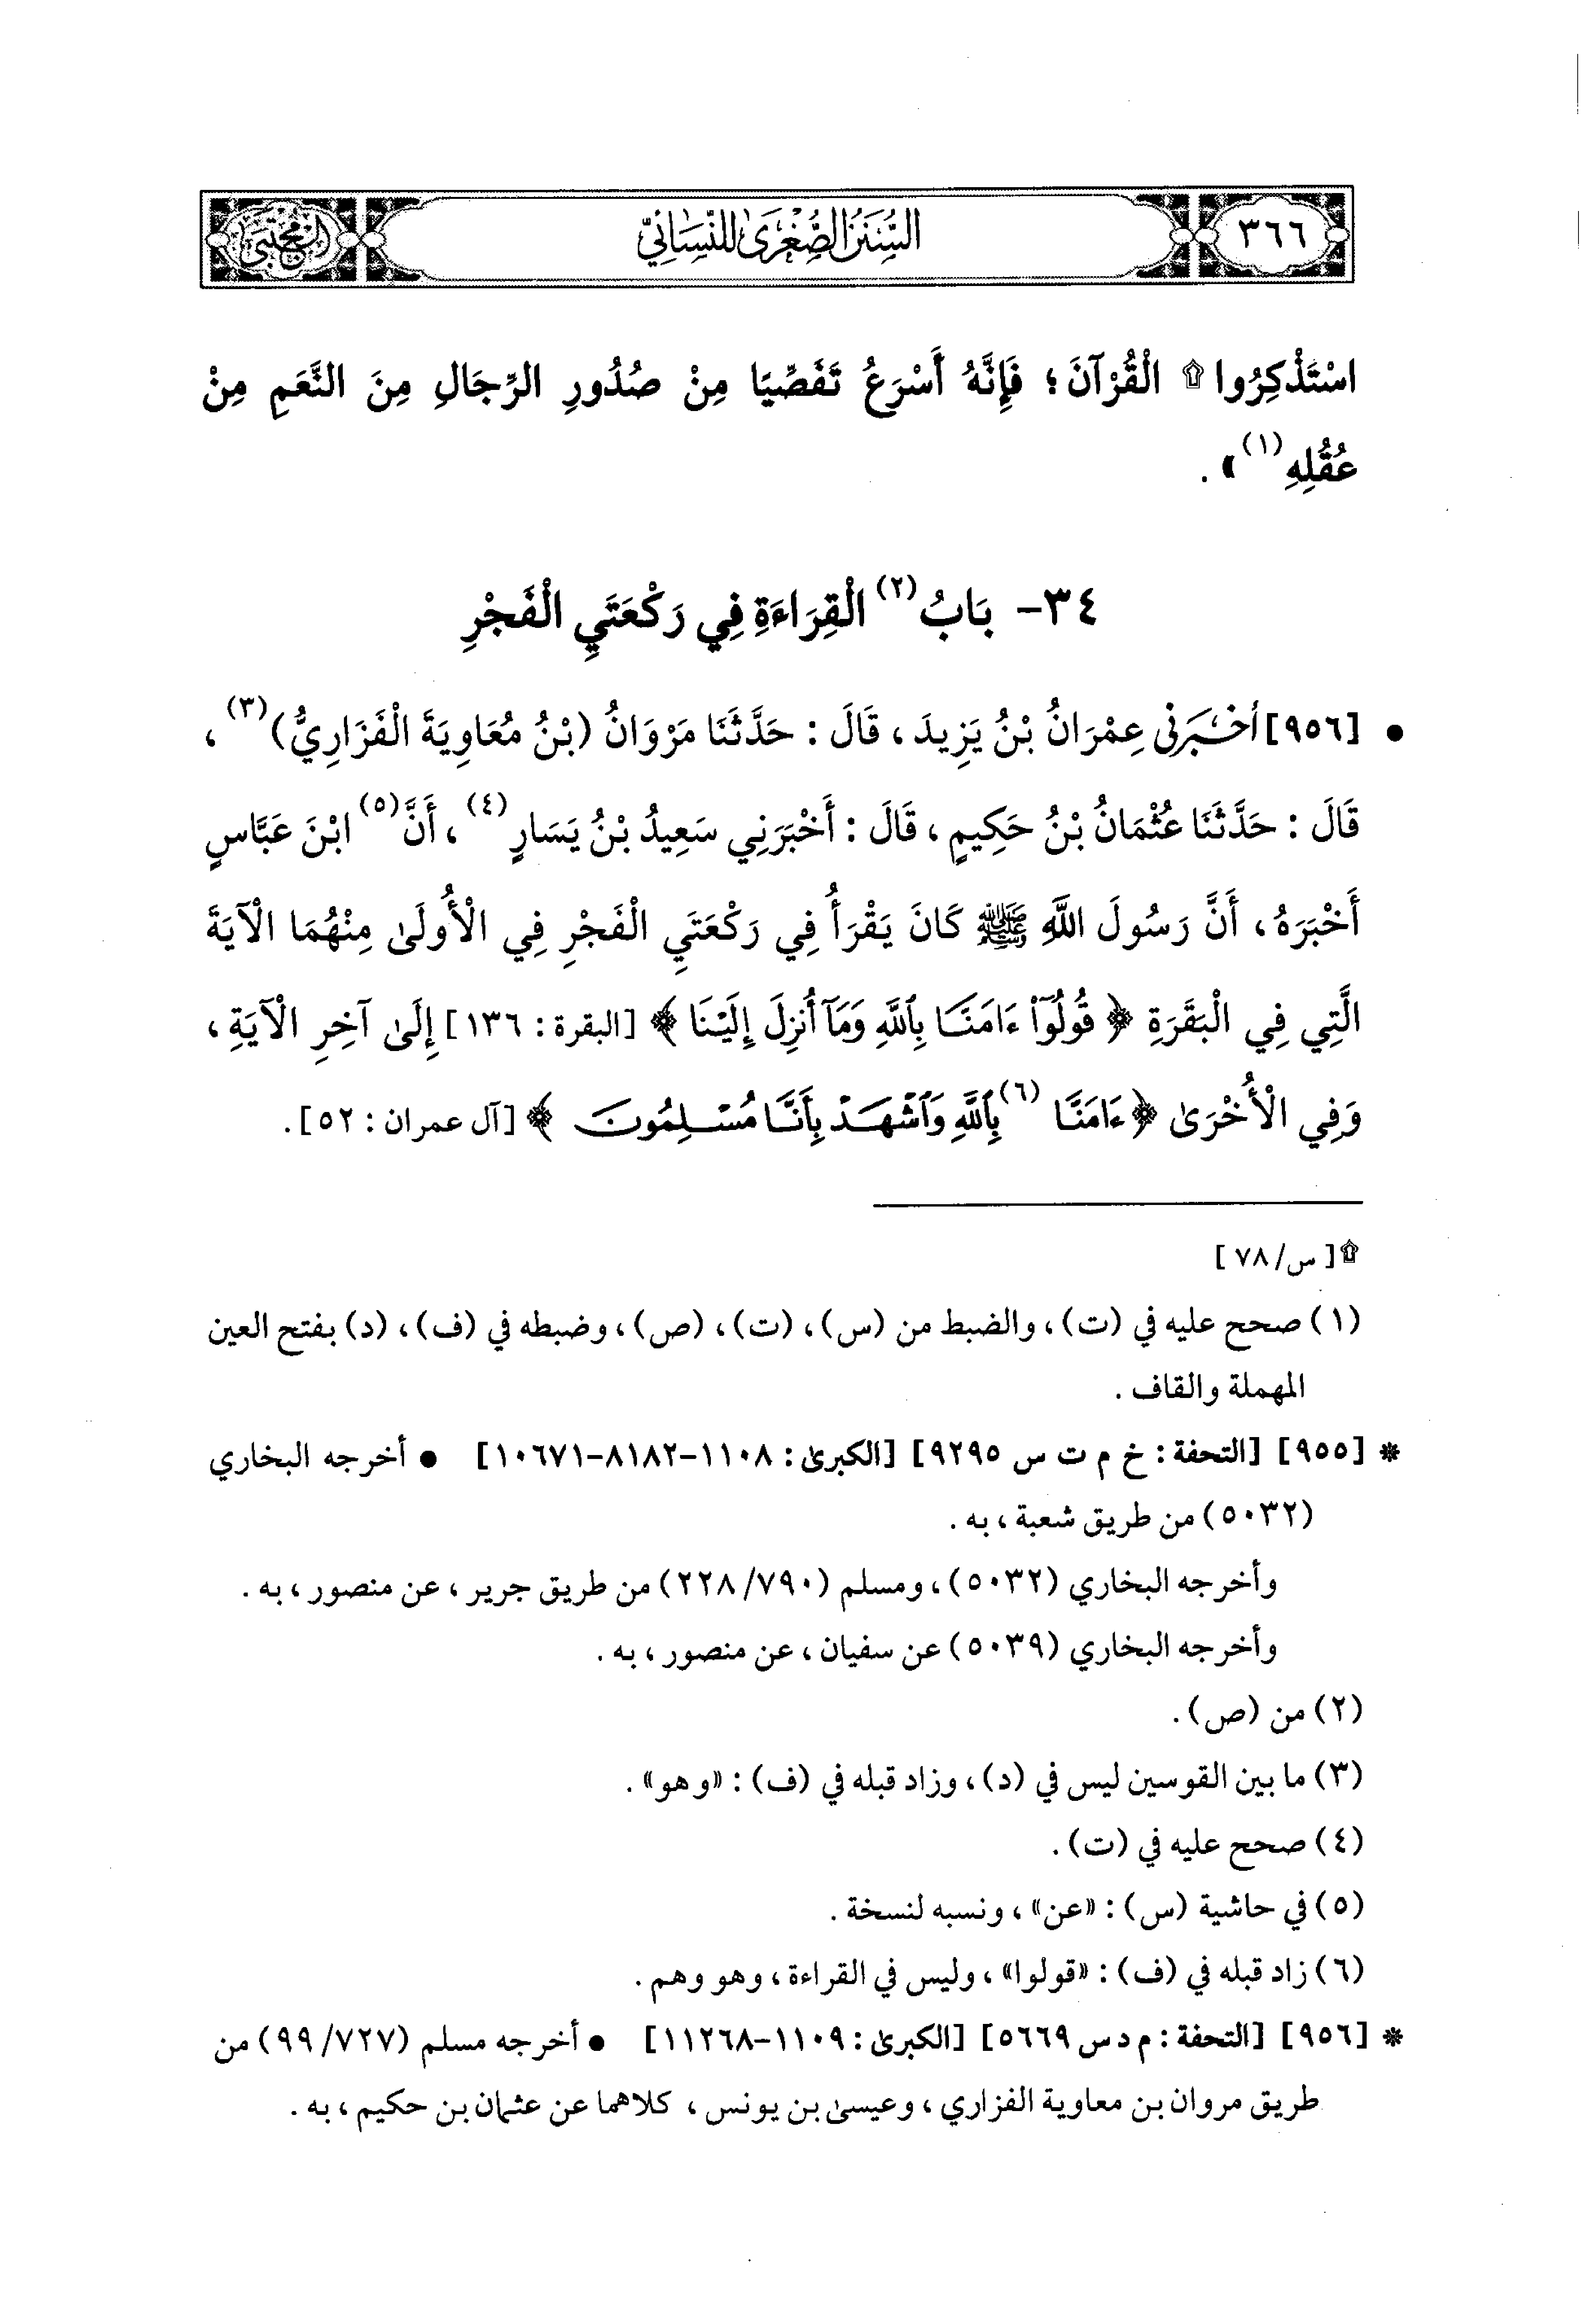 ٣٦٦
السُّنَنُ الصُّغْرَى لِلنَّسَائِيِّ
المجتبى
اسْتَذْكِرُوا ۩ الْقُرْآنَ؛ فَإِنَّهُ أَسْرَعُ تَفَصِّيًا مِنْ صُدُورِ الرِّجَالِ مِنَ النَّعَمِ مِنْ
عُقُلِهِ(١)».
٣٤- بَابُ(٢) الْقِرَاءَةِ فِي رَكْعَتَيِ الْفَجْرِ
• [٩٥٦] أَخْبَرَنِي عِمْرَانُ بْنُ يَزِيدَ، قَالَ: حَدَّثَنَا مَرْوَانُ (بْنُ مُعَاوِيَةَ الْفَزَارِيُّ)(٣)،
قَالَ: حَدَّثَنَا عُثْمَانُ بْنُ حَكِيمٍ، قَالَ: أَخْبَرَنِي سَعِيدُ بْنُ يَسَارٍ(٤)، أَنَّ(٥) ابْنَ عَبَّاسٍ
أَخْبَرَهُ، أَنَّ رَسُولَ اللَّهِ ﷺ كَانَ يَقْرَأُ فِي رَكْعَتَيِ الْفَجْرِ فِي الْأُولَىٰ مِنْهُمَا الْآيَةَ
الَّتِي فِي الْبَقَرَةِ ﴿قُولُوٓا۟ ءَامَنَّا بِٱللَّهِ وَمَآ أُنزِلَ إِلَيْنَا﴾ [البقرة: ١٣٦] إِلَىٰ آخِرِ الْآيَةِ،
وَفِي الْأُخْرَىٰ ﴿ءَامَنَّا(٦) بِٱللَّهِ وَٱشْهَدْ بِأَنَّا مُسْلِمُونَ﴾ [آل عمران: ٥٢].
۩[س/٧٨]
(١) صحح عليه في (ت)، والضبط من (س)، (ت)، (ص)، وضبطه في (ف)، (د) بفتح العين
المهملة والقاف.
* [٩٥٥] [التحفة: خ م ت س ٩٢٩٥] [الكبرىٰ: ١١٠٨-٨١٨٢-١٠٦٧١] • أخرجه البخاري
(٥٠٣٢) من طريق شعبة، به.
وأخرجه البخاري (٥٠٣٢)، ومسلم (٢٢٨/٧٩٠) من طريق جرير، عن منصور، به.
وأخرجه البخاري (٥٠٣٩) عن سفيان، عن منصور، به.
(٢) من (ص).
(٣) ما بين القوسين ليس في (د)، وزاد قبله في (ف): «وهو».
(٤) صحح عليه في (ت).
(٥) في حاشية (س): «عن»، ونسبه لنسخة.
(٦) زاد قبله في (ف): «قولوا»، وليس في القراءة، وهو وهم.
* [٩٥٦] [التحفة: م د س ٥٦٦٩] [الكبرىٰ: ١١٠٩-١١٢٦٨] • أخرجه مسلم (٩٩/٧٢٧) من
طريق مروان بن معاوية الفزاري، وعيسىٰ بن يونس، كلاهما عن عثمان بن حكيم، به.